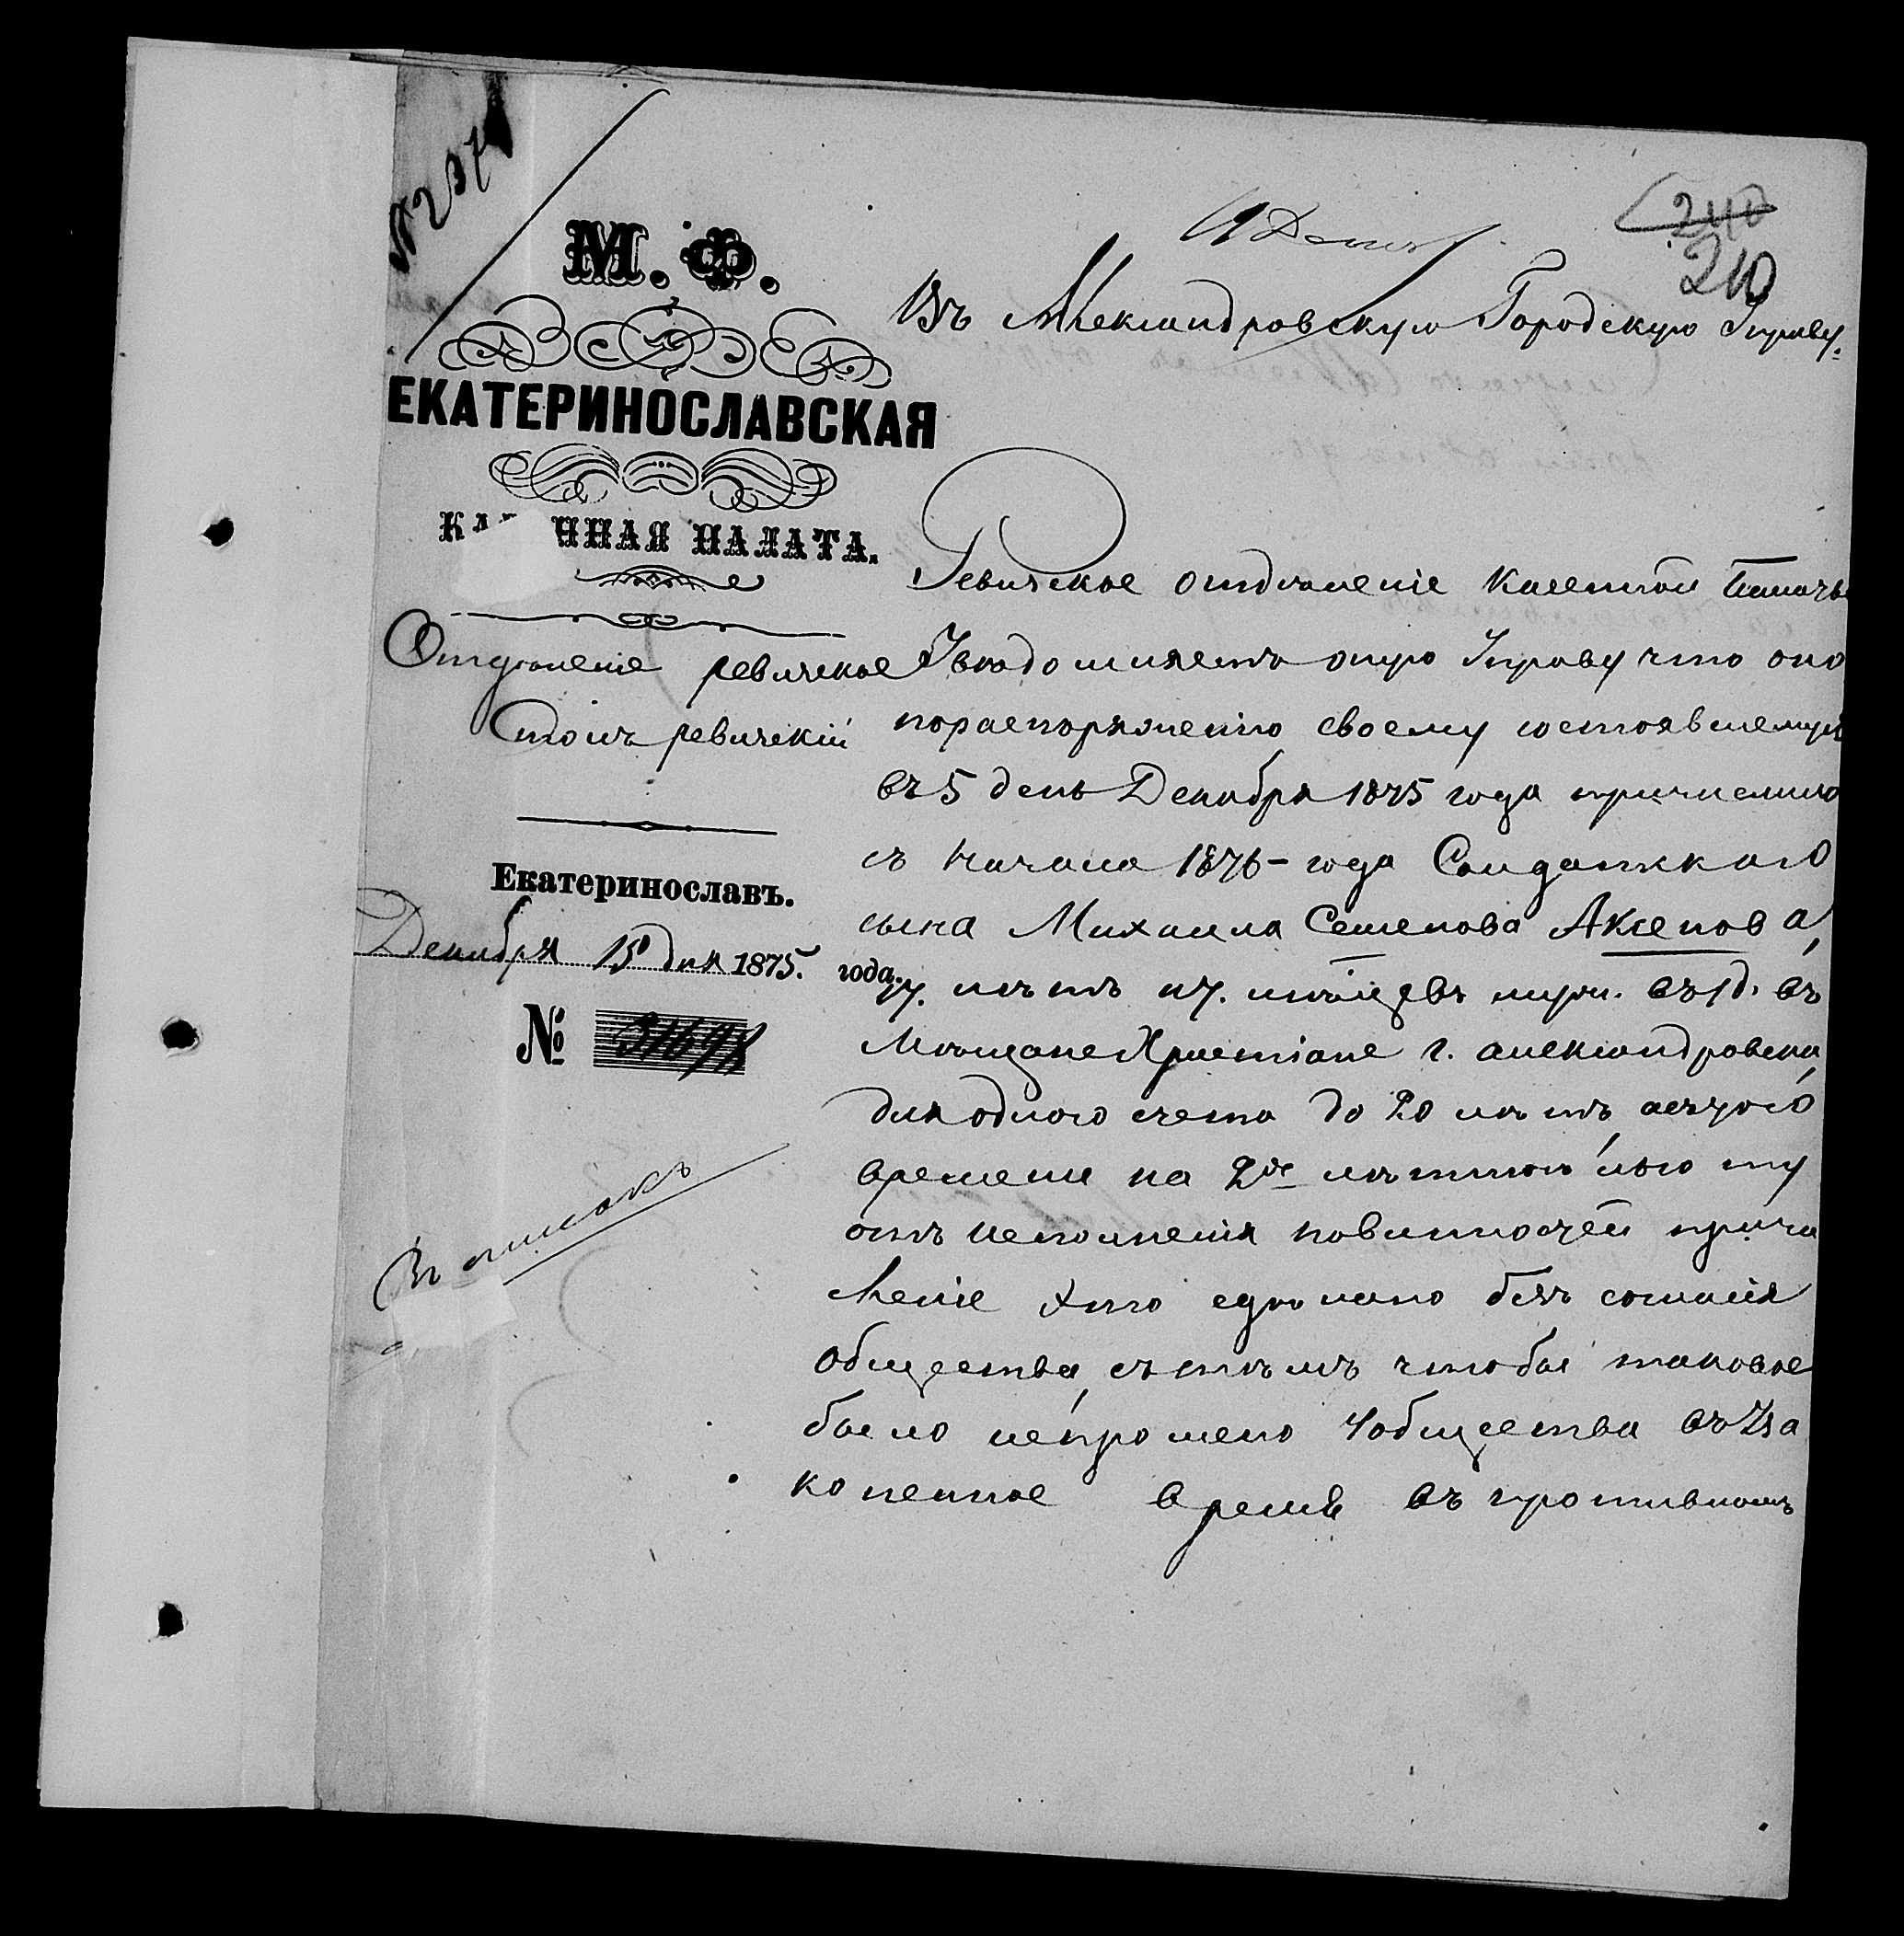 240
210
М. Ф.
ЕКАТЕРИНОСЛАВСКАЯ
КА ННАЯ ПАЛАТА.
Отделеніе ревизское
Столъ ревизскій
Екатеринославъ.
Декабря 15 дня 1875. года.
№ 31698
Въ списокъ
Въ Александровскую Городскую Управу.
Ревизское отделеніе Казенной Палаты
Уведомляетъ оную Управу что оно
по распоряженію своему состоявшемуся
въ 5 день Декабря 1875 года причислило
съ начала 1876 - года Солдатскаго
сына Михаила Семенова Аксенова,
17. летъ въ
Мещане Христіане г. Александровска
для одного счета до 20 летъ а съ того
времени на 2хъ летнюю льготу
отъ исполненія повинностей причи
сленіе это сделано безъ согласія
общества, съ темъ чтобы таковое
было испрошено у общества въ уза
коненное время въ противномъ